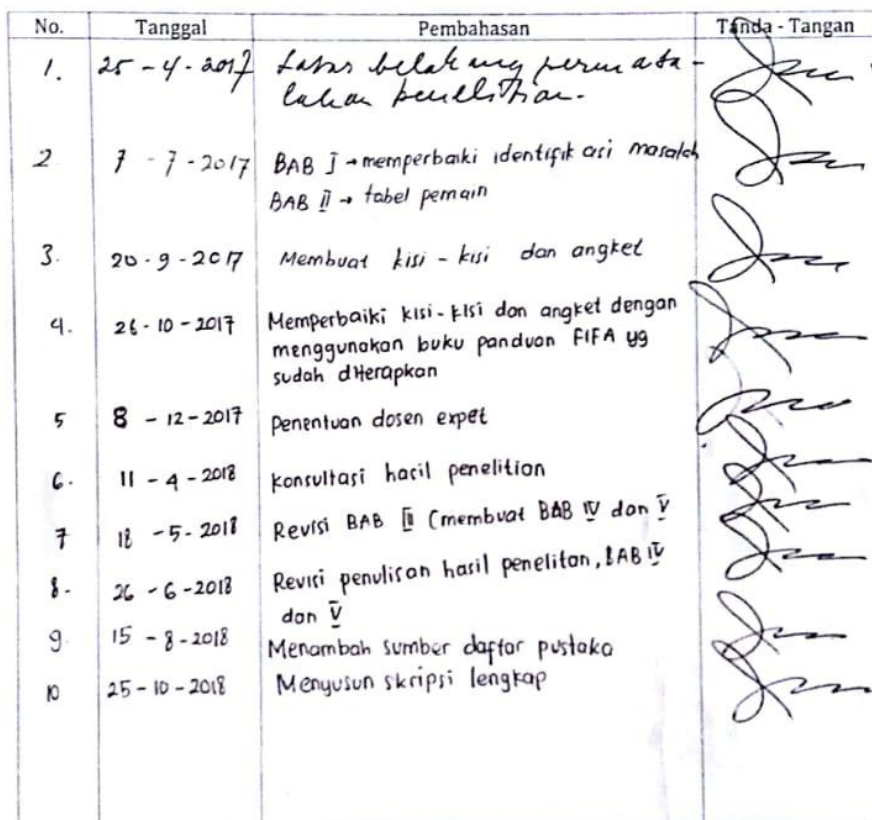 No. Tanggal Pembahasan Tanda - Tangan
1. 25 - 4 - 2017 Latar belakang permasa-
lahan penelitian.
2 7 - 7 - 2017 BAB I → memperbaiki identifikasi masalah
BAB II → tabel pemain
3. 20 - 9 - 2017 Membuat kisi - kisi dan angket
4. 26 - 10 - 2017 Memperbaiki kisi - kisi dan angket dengan
menggunakan buku panduan FIFA yg
sudah diterapkan
5 8 - 12 - 2017 Penentuan dosen expet
6. 11 - 4 - 2018 Konsultasi hasil penelition
7 18 - 5 - 2018 Revisi BAB III (membuat BAB IV dan V
8. 26 - 6 - 2018 Revisi penulisan hasil penelitan, BAB IV
dan V
9. 15 - 8 - 2018 Menambah sumber daftar pustaka
10 25 - 10 - 2018 Menyusun skripsi lengkap